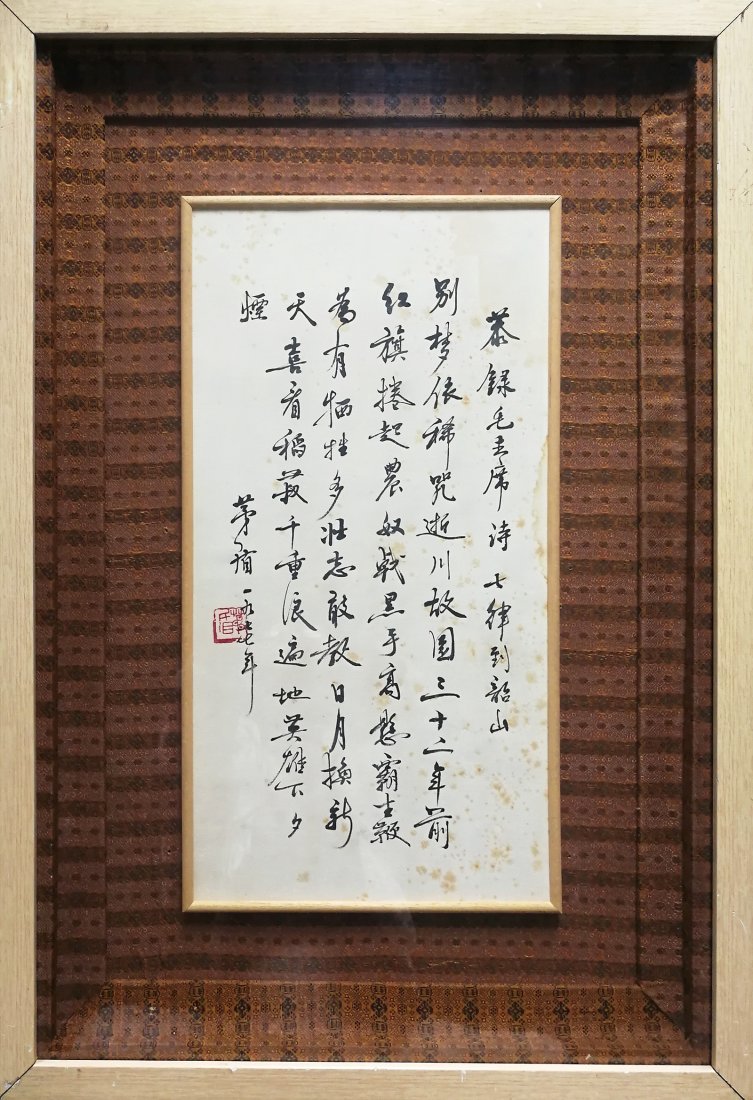 恭録毛主席诗七律到韶山
别梦依稀咒逝川故园三十二年前
红旗捲起農奴戟黑手高懸霸主鞭
為有牺牲多壮志敢教日月换新
天喜看稻菽千重浪遍地英雄下夕
煙
茅盾一九七七年